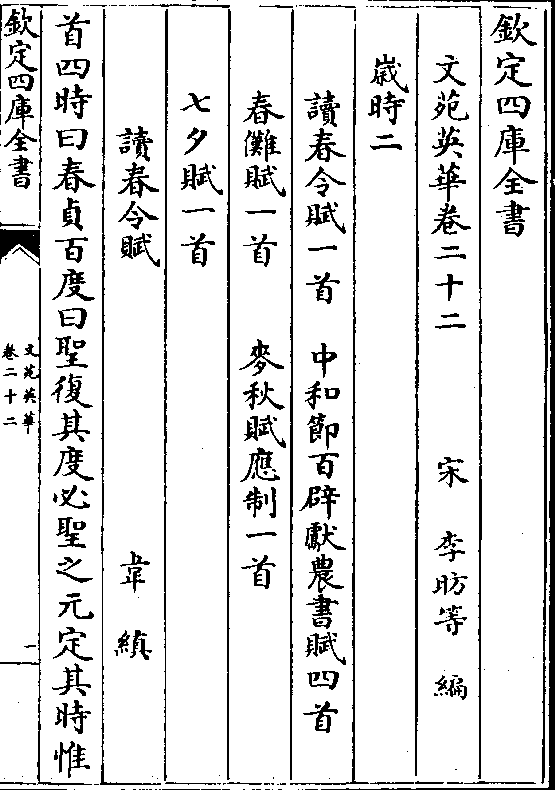 欽定四庫全書
文苑英華卷二十二 宋 李昉等 編
歲時二
讀春令賦一首 中和節百辟獻農書賦四首
春儺賦一首 麥秋賦應制一首
七夕賦一首
讀春令賦 韋縝
首四時曰春貞百度曰聖復其度必聖之元定其時惟
欽定四庫全書
文苑英華
卷二十二
一